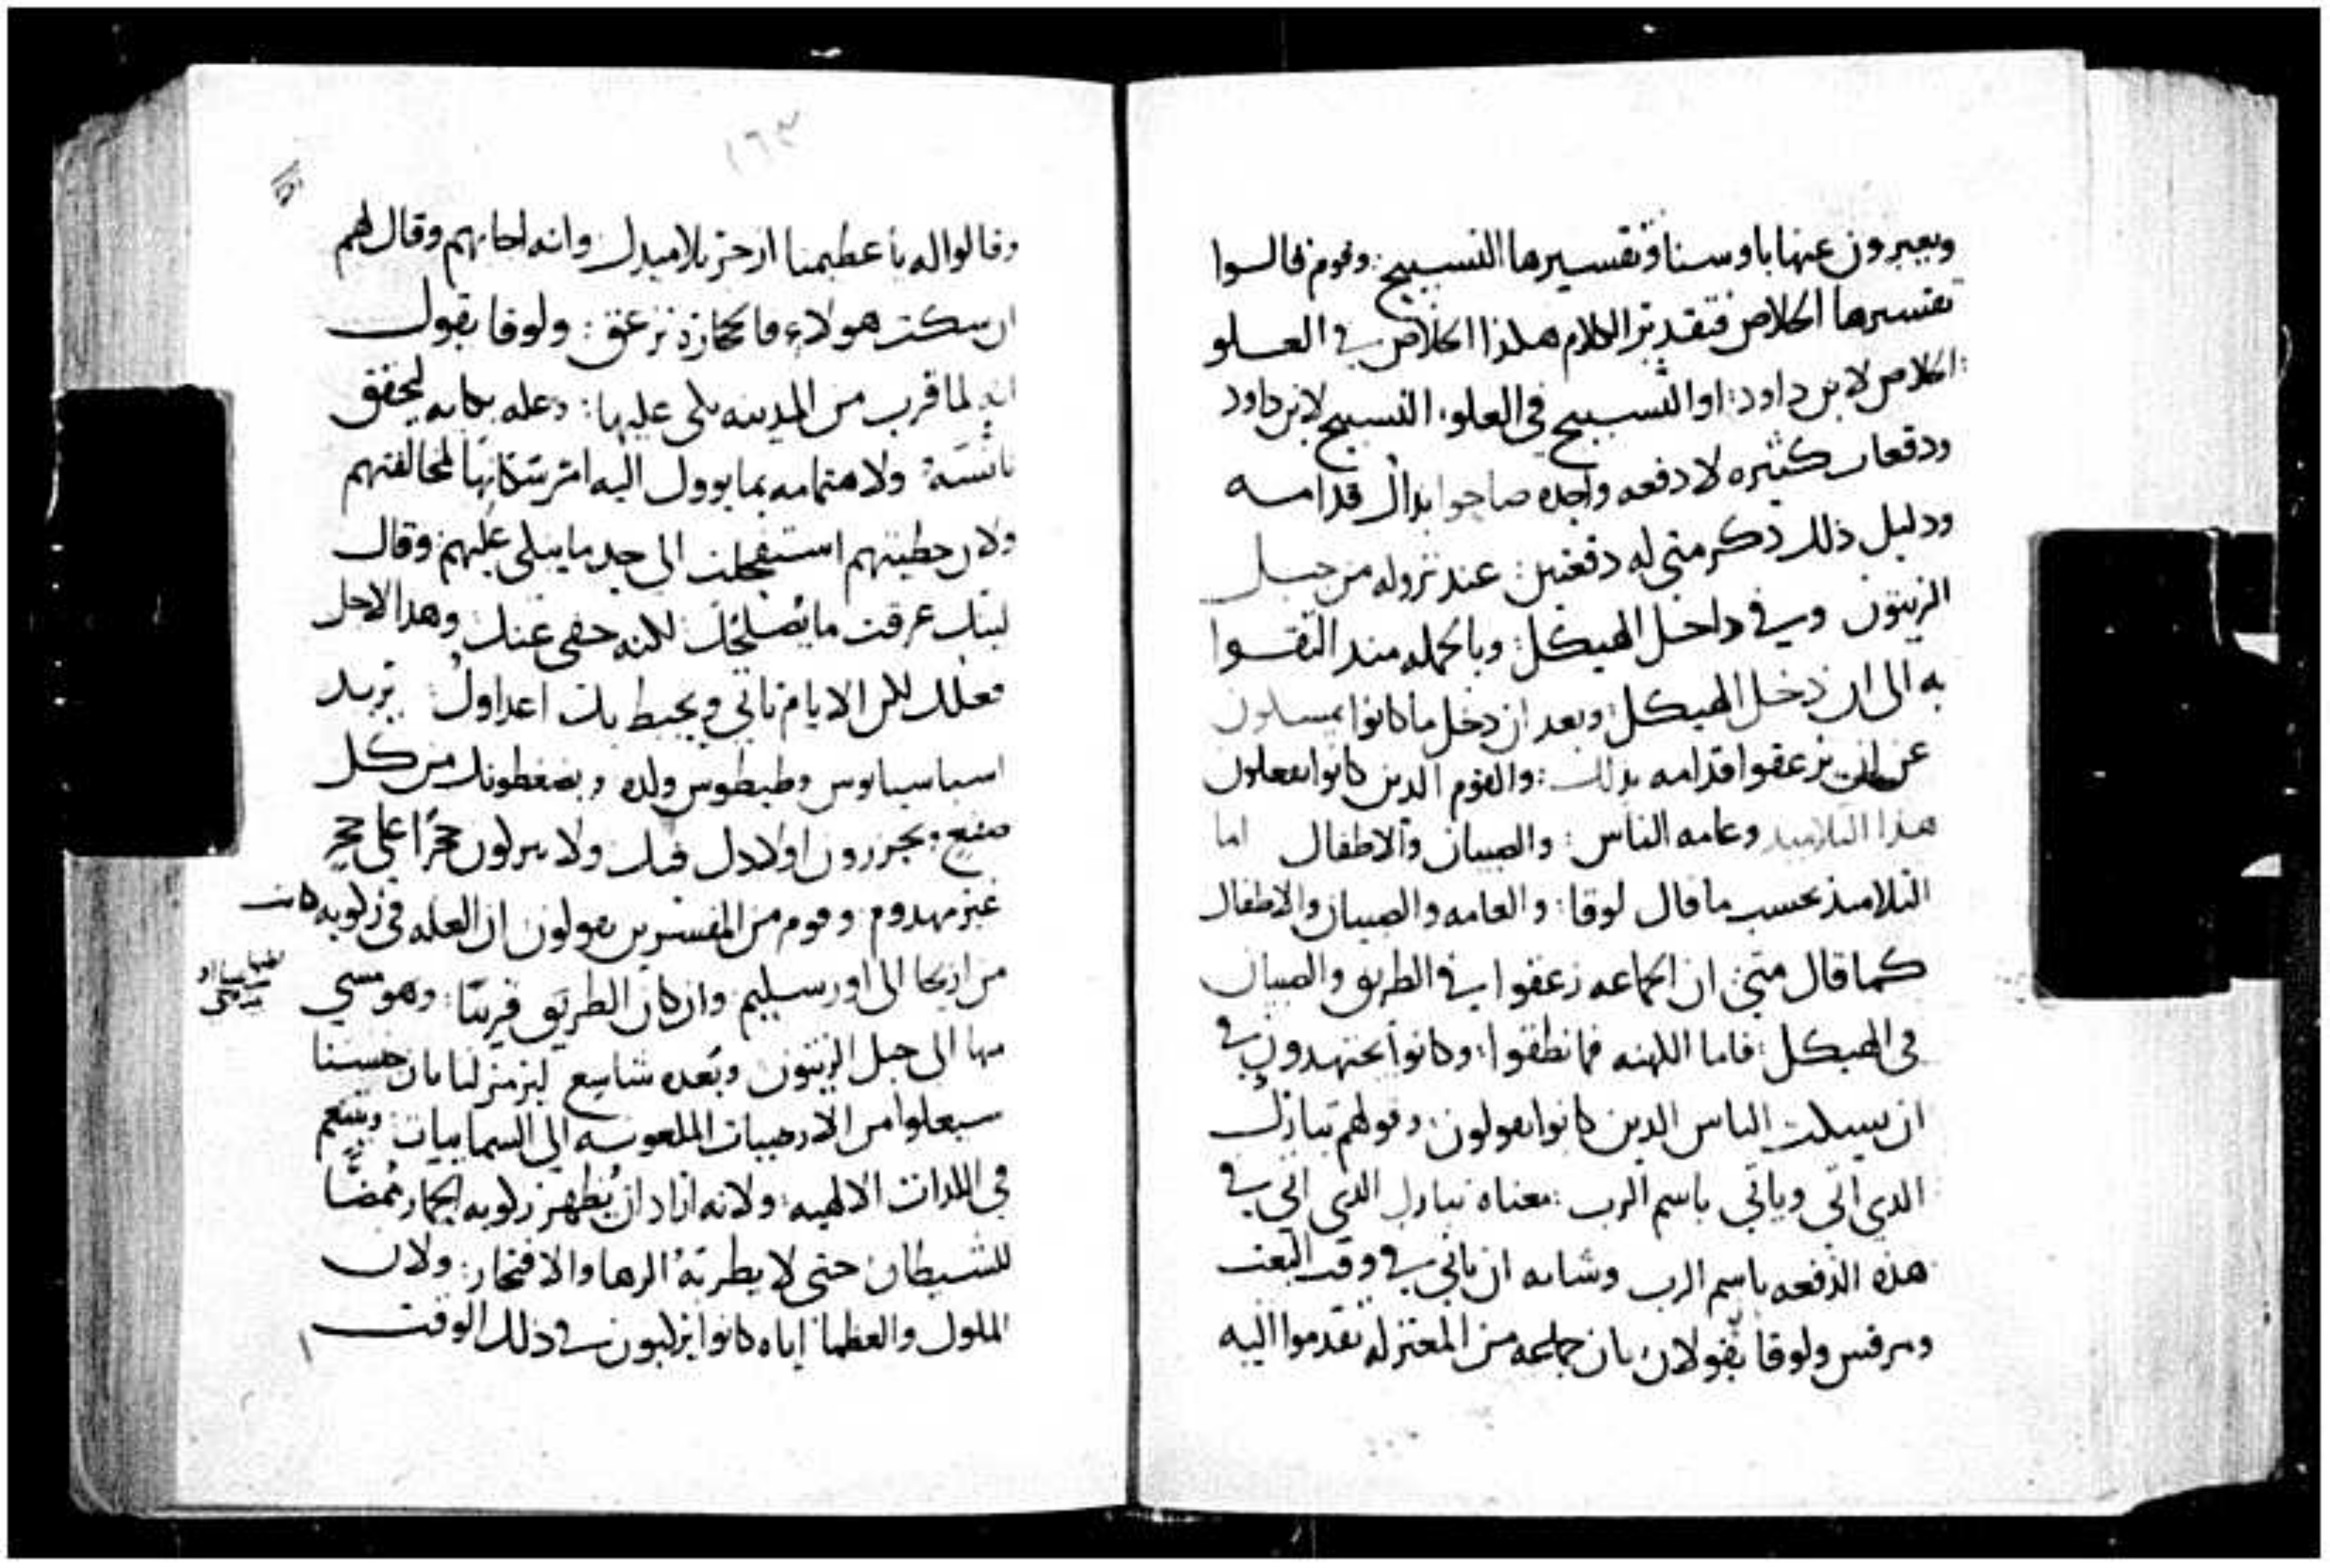 ويعبرون عنها باوسنا وتفسيرها التسبيح: وقوم قالوا
تفسيرها الخلاص فتقدير الكلام هكذا الخلاص في العلو
الخلاص لابن داود: او التسبيح في العلو، التسبيح لابن داود
ودفعات كثيره لا دفعه واحده صاحوا بذاك قدامه
ودليل ذلك ذكر متى له دفعتين: عند نزوله من جبل
الزيتون وفي داخل الهيكل: وبالجمله منذ التقوا
به الى ان دخل الهيكل وبعد ان دخل ما كانوا يمسكون
عن ان يزعقوا قدامه بذلك: والقوم الدين كانوا يفعلون
هذا التلاميد وعامه الناس: والصبيان والاطفال اما
التلاميذ بحسب ما قال لوقا: والعامه والصبيان والاطفال
كما قال متى: ان الجماعه زعقوا في الطريق والصبيان
في الهيكل: فاما الكهنه فما نطقوا: وكانوا يجتهدون في
ان يسكت الناس الدين كانوا يقولون: وقولهم تبارك
الدي اتى وياتي باسم الرب: معناه تبارك الدي اتى في
هذه الدفعه باسم الرب وشانه ان ياتي في وقت البعث
ومرقس ولوقا يقولان بان جماعه من المعتزله تقدموا اليه
١٦٣
وقالوا له يا عظيمنا ازجر تلاميدك وانه اجابهم وقال لهم
ان سكت هولاء فالحجاره تزعق: ولوقا يقول
انه لما قرب من المدينه بكى عليها: وعله بكايه ليحقق
تانسه: ولاهتمامه بما يوول اليه امر سكانها لمخالفتهم
ولان خطيتهم استفحلت الى حد ما يبكى عليهم: وقال
ليتك عرفت ما يصلحك لكنه خفي عنك وهدا لاجل
فعلك لكن الايام تاتي ويحيط بك اعداوك: يريد
اسباسيانوس وطيطوس ولده ويضغطونك من كل
صقع ويجزرون اولادك فيك ولا يتركون حجرًا على حجر
غير مهدوم: وقوم من المفسرين يقولون ان العله في ركوبه كانت
من اريحا الى اورسليم: وان كان الطريق قريبًا: وهو مشي
منها الى جبل الزيتون وبعده شاسع ليرمز لنا بان جنسنا
سيعلوا من الارضيات الملعونه الى السماييات ويتنعم
في اللدات الالهيه: ولانه اراد ان يظهر ركوبه الحمار ممضًا
للشيطان حتى لا يطربه الزها والافتخار: ولان
الملوك والعظما اياه كانوا يركبون في ذلك الوقت